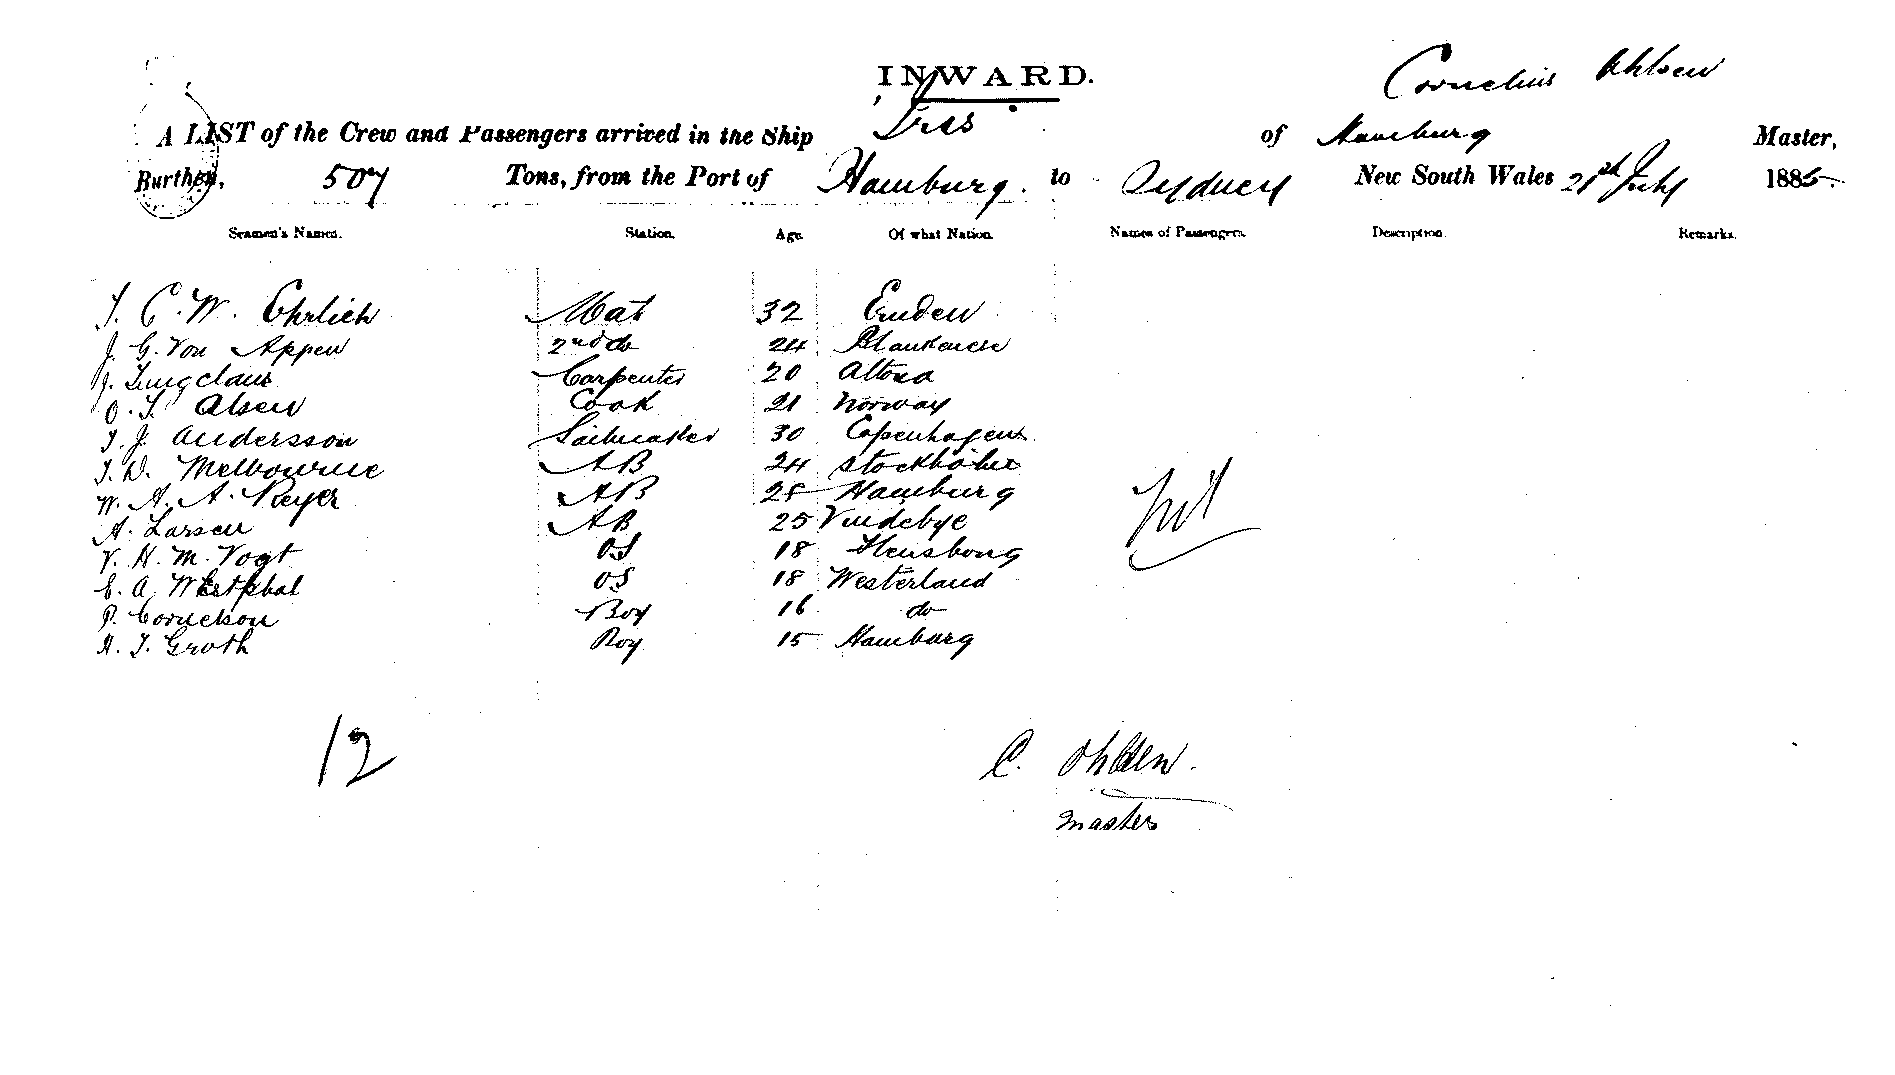 INWARD.
Cornelius Ohlsen
A LIST of the Crew and Passengers arrived in the Ship Iris of Hamburg Master,
Burthen, 507 Tons, from the Port of Hamburg. to Sydney New South Wales 21st July 1885.
Seamen's Names. Station. Age. Of what Nation. Names of Passengers. Description. Remarks.
J. C. W. Ehrlich Mat 32 Emden
J. G. Von Appen 2nd do 24 Blankenese
J. Jungclaus Carpenter 20 Altona
O. T. Olsen Cook 21 Norway
J. J. Andersson Sailmaker 30 Copenhagen
J. D. Melbourne AB 24 Stockholm
W. A. A. Reyer AB 25 Hamburg
A. Larsen AB 25 Vindebye
V. H. M. Vogt OS 18 Flensborg
E. A. Westphal OS 18 Westerland
P. Cornelson Boy 16 do
H. J. Groth Boy 15 Hamburg
Nil
12
C. Ohlsen.
Master